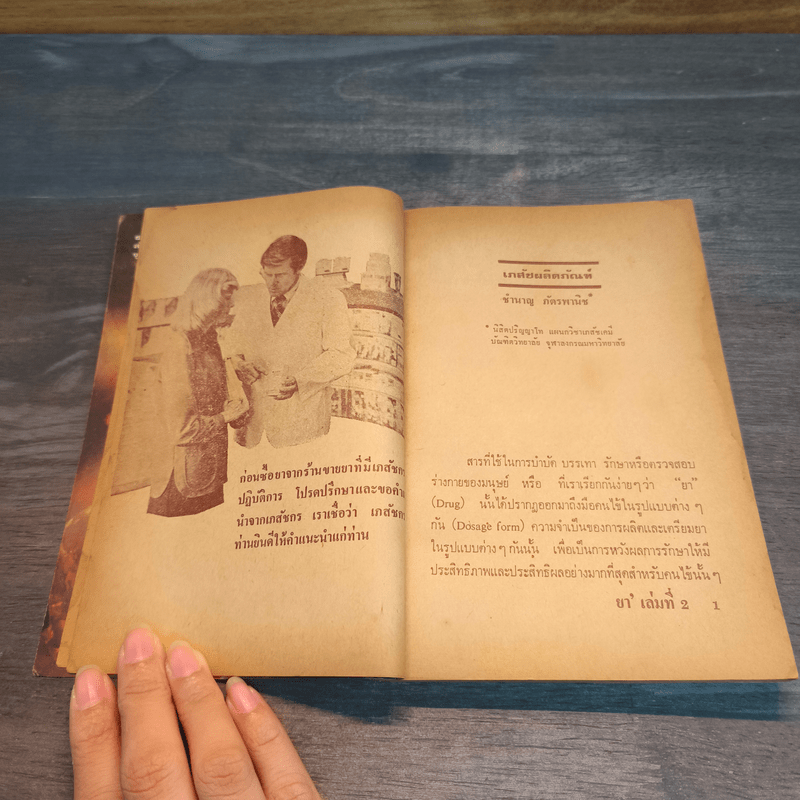 ก่อนซื้อยาจากร้านขายยาที่มีเภสัชกร
ปฏิบัติการ โปรดปรึกษาและขอคำแนะ
นำจากเภสัชกร เราเชื่อว่า เภสัชกร
ท่านยินดีให้คำแนะนำแก่ท่าน
เภสัชผลิตภัณฑ์
ชำนาญ ภัทรพานิช*
* นิสิตปริญญาโท แผนกวิชาเภสัชเคมี
บัณฑิตวิทยาลัย จุฬาลงกรณมหาวิทยาลัย
สารที่ใช้ในการบำบัด บรรเทา รักษาหรือตรวจสอบ
ร่างกายของมนุษย์ หรือ ที่เราเรียกกันง่ายๆว่า "ยา"
(Drug) นั้นได้ปรากฏออกมาถึงมือคนไข้ในรูปแบบต่าง ๆ
กัน (Dosage form) ความจำเป็นของการผลิตและเตรียมยา
ในรูปแบบต่างๆกันนั้น เพื่อเป็นการหวังผลการรักษาให้มี
ประสิทธิภาพและประสิทธิผลอย่างมากที่สุดสำหรับคนไข้นั้นๆ
ยา' เล่มที่ 2 1